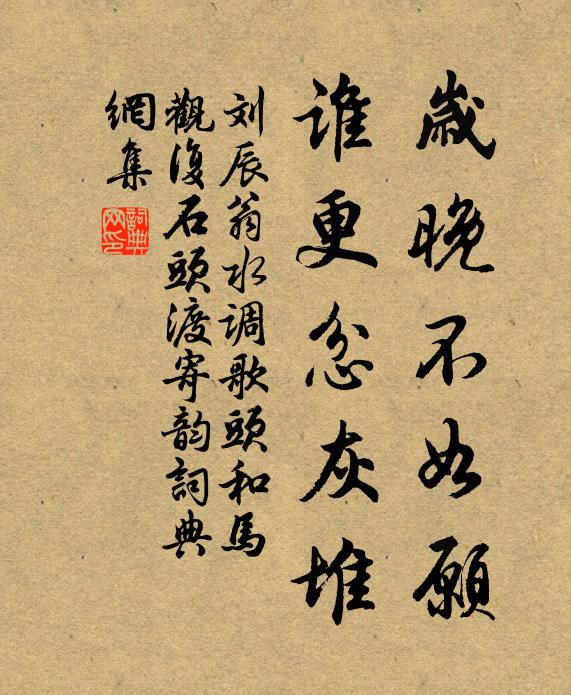 歲晚不如願
誰更忿灰堆
刘辰翁水调歌頭和馬
觀復石頭渡寄韵詞典
網集
詞典網印